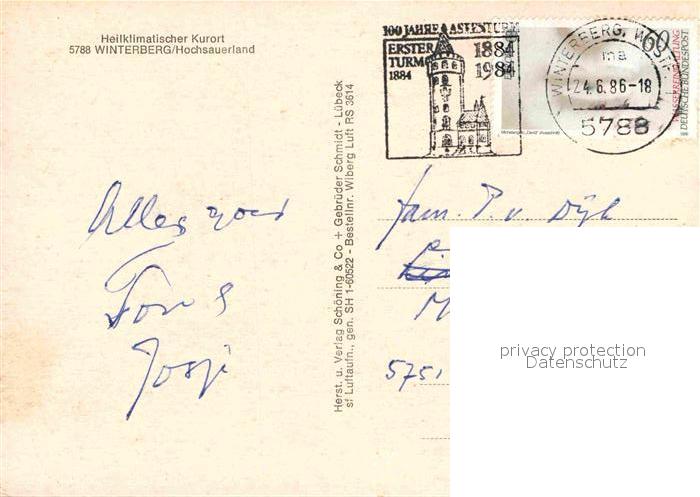 Heilklimatischer Kurort
5788 WINTERBERG/Hochsauerland
100 JAHRE ASTENTURM
ERSTER 1884
TURM 1984
1884
60
DEUTSCHE BUNDESPOST
WINTERBERG, WESTF
ma
24.6.86-18
5788
Herst. u. Verlag Schöning & Co + Gebrüder Schmidt - Lübeck
sf Luftaufn., gen. SH 1-60522 - Bestellnr. Wiberg Luft RS 3614
Alles goed
Ton &
Josje
Fam. P. v. Dijk
5751
privacy protection
Datenschutz